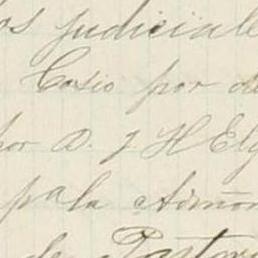 os judiciale
Cosio por de
por D. J H Elg
pala Admon
de Pastor